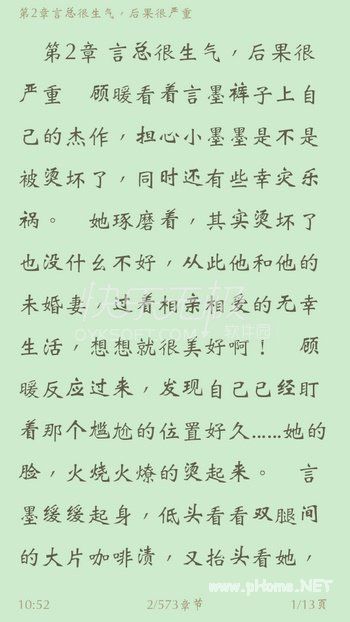 第2章言总很生气，后果很严重
第2章 言总很生气，后果很
严重　顾暖看着言墨裤子上自
己的杰作，担心小墨墨是不是
被烫坏了，同时还有些幸灾乐
祸。　她琢磨着，其实烫坏了
也没什么不好，从此他和他的
未婚妻，过着相亲相爱的无幸
生活，想想就很美好啊！　顾
暖反应过来，发现自己已经盯
着那个尴尬的位置好久……她的
脸，火烧火燎的烫起来。　言
墨缓缓起身，低头看看双腿间
的大片咖啡渍，又抬头看她，
10:52　2/573章节　1/13页
OYKSOFT.COM 软件园
www.pHome.NET